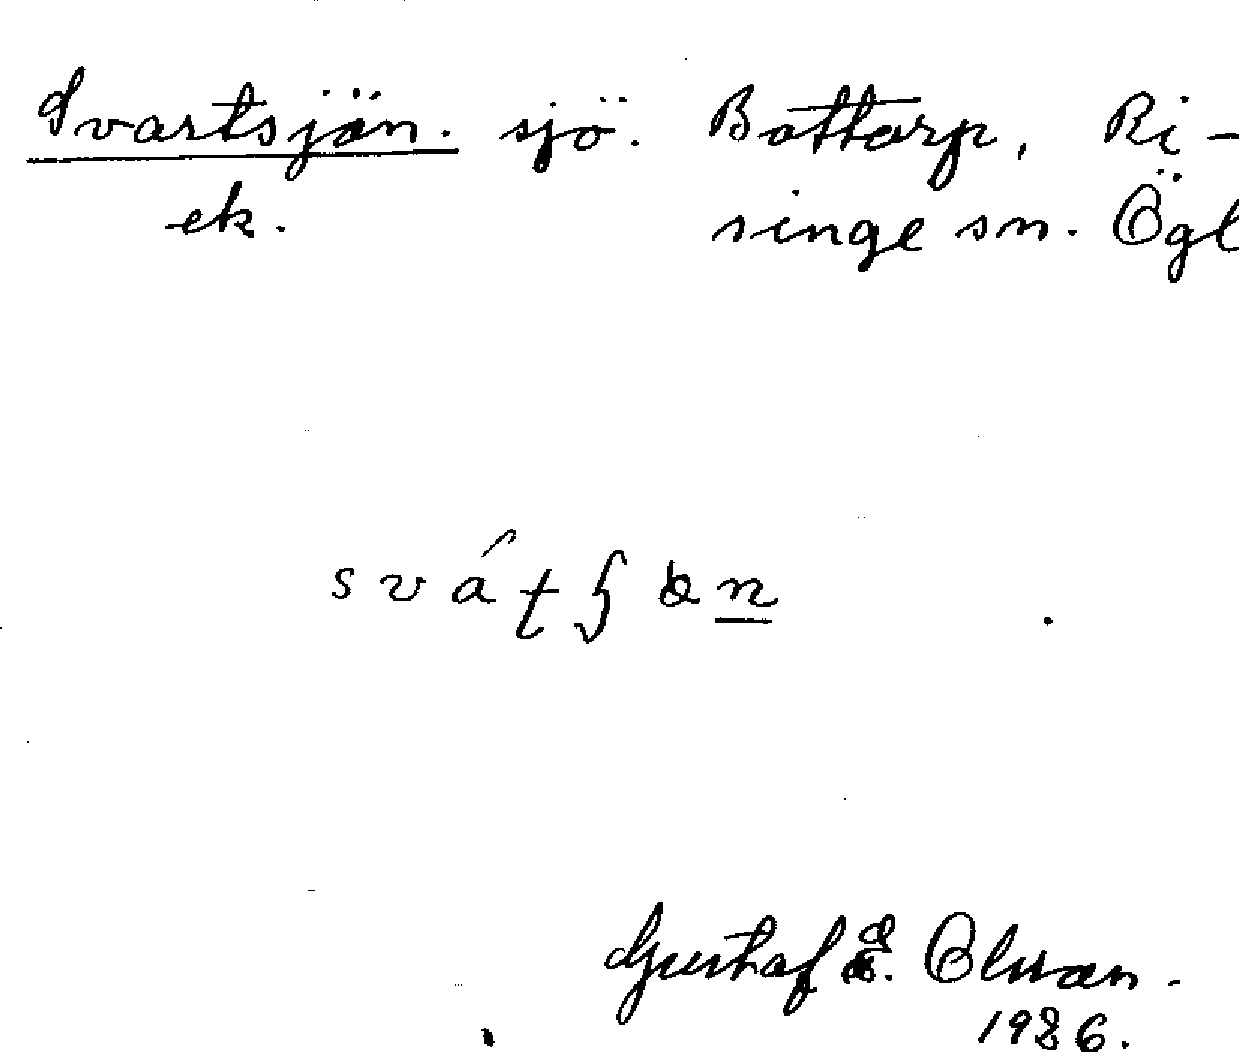 Svartsjön. sjö. Bottorp, Ri-
ek. singe sn. Ögl
Gustaf E. Olsson.
1926.